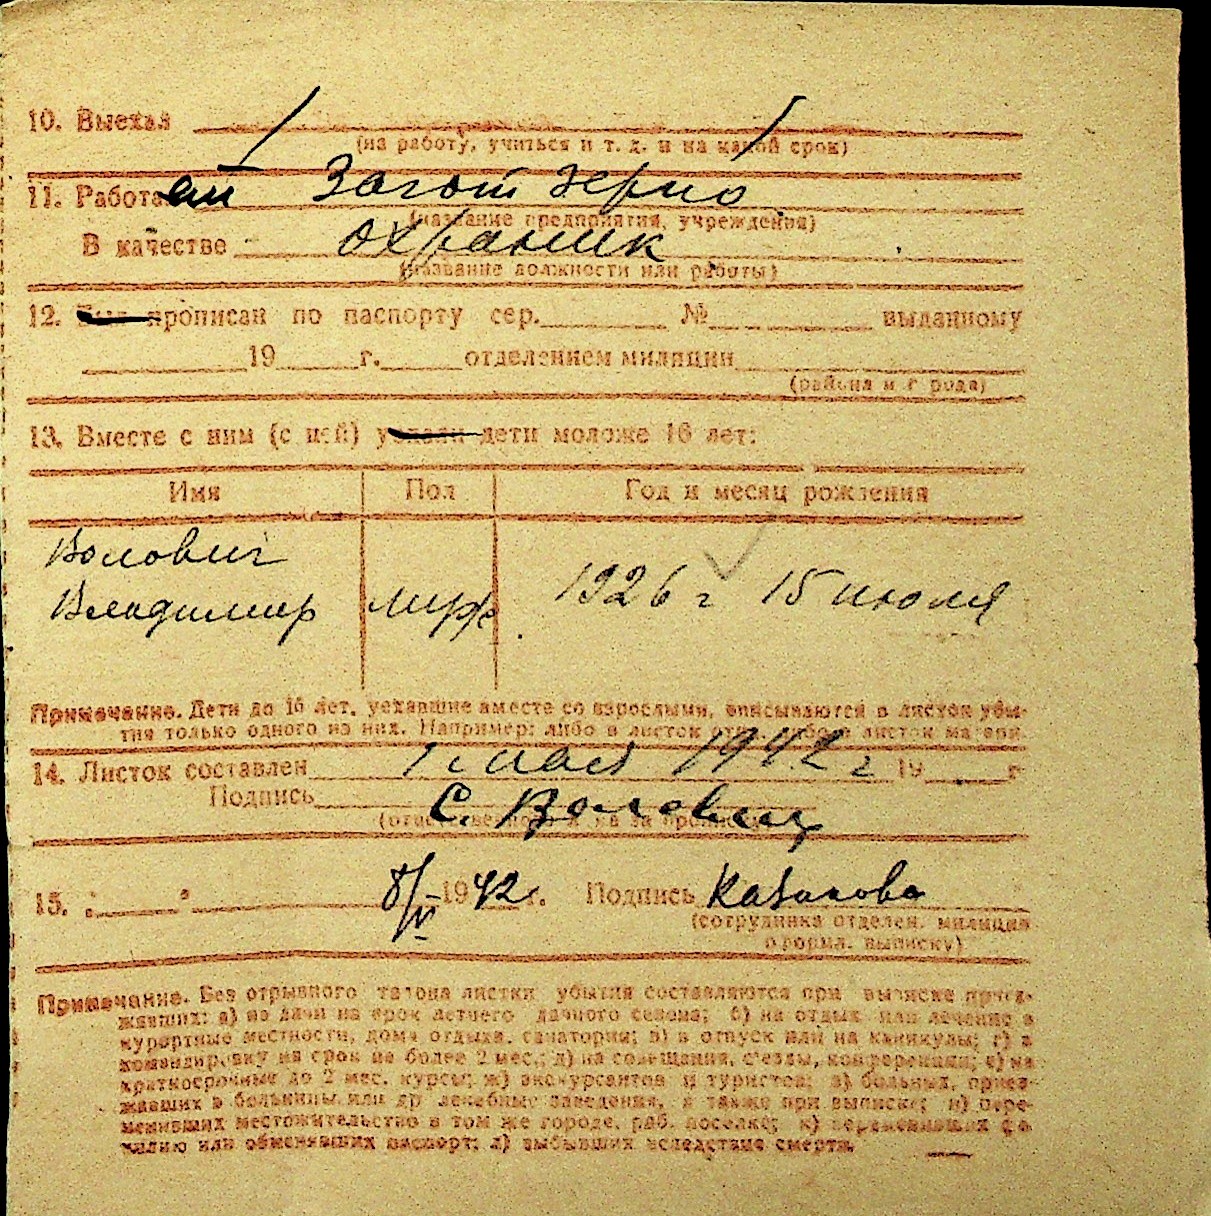 10. Выехал
(на работу, учиться и т. д. и на какой срок)
11. Работает Заготзерно
(название предприятия, учреждения)
В качестве охраник
(название должности или работы)
12. Был прописан по паспорту сер. № выданному
19 г. отделением милиции
(района и города)
13. Вместе с ним (с ней) уехали дети моложе 16 лет:
Имя Пол Год и месяц рождения
Волович
Владимир муж 1926 г 15 июля
Примечание. Дети до 16 лет, уехавшие вместе со взрослыми, вписываются в листок убы-
тия только одного из них. Например: либо в листок отца, либо в листок матери.
14. Листок составлен 1 мая 1942 г 19 г.
Подпись С. Волович
(ответственного лица за прописку)
15. " " 8/VI 1942 г. Подпись Казакова
(сотрудника отделен. милиции
оформл. выписку)
Примечание. Без отрывного талона листки убытия составляются при выписке приез-
жавших: а) на дачи на срок летнего дачного сезона; б) на отдых или лечение в
курортные местности, дома отдыха, санатории; в) в отпуск или на каникулы; г) в
командировку на срок не более 2 мес.; д) на совещания, съезды, конференции; е) на
краткосрочные до 2 мес. курсы; ж) экскурсантов и туристов; з) больных, приез-
жавших в больницы или др лечебные заведения, а также при выписке; и) пере-
менивших местожительство в том же городе, раб. поселке; к) переменивших фа-
милию или обменявших паспорт; л) выбывших вследствие смерти.